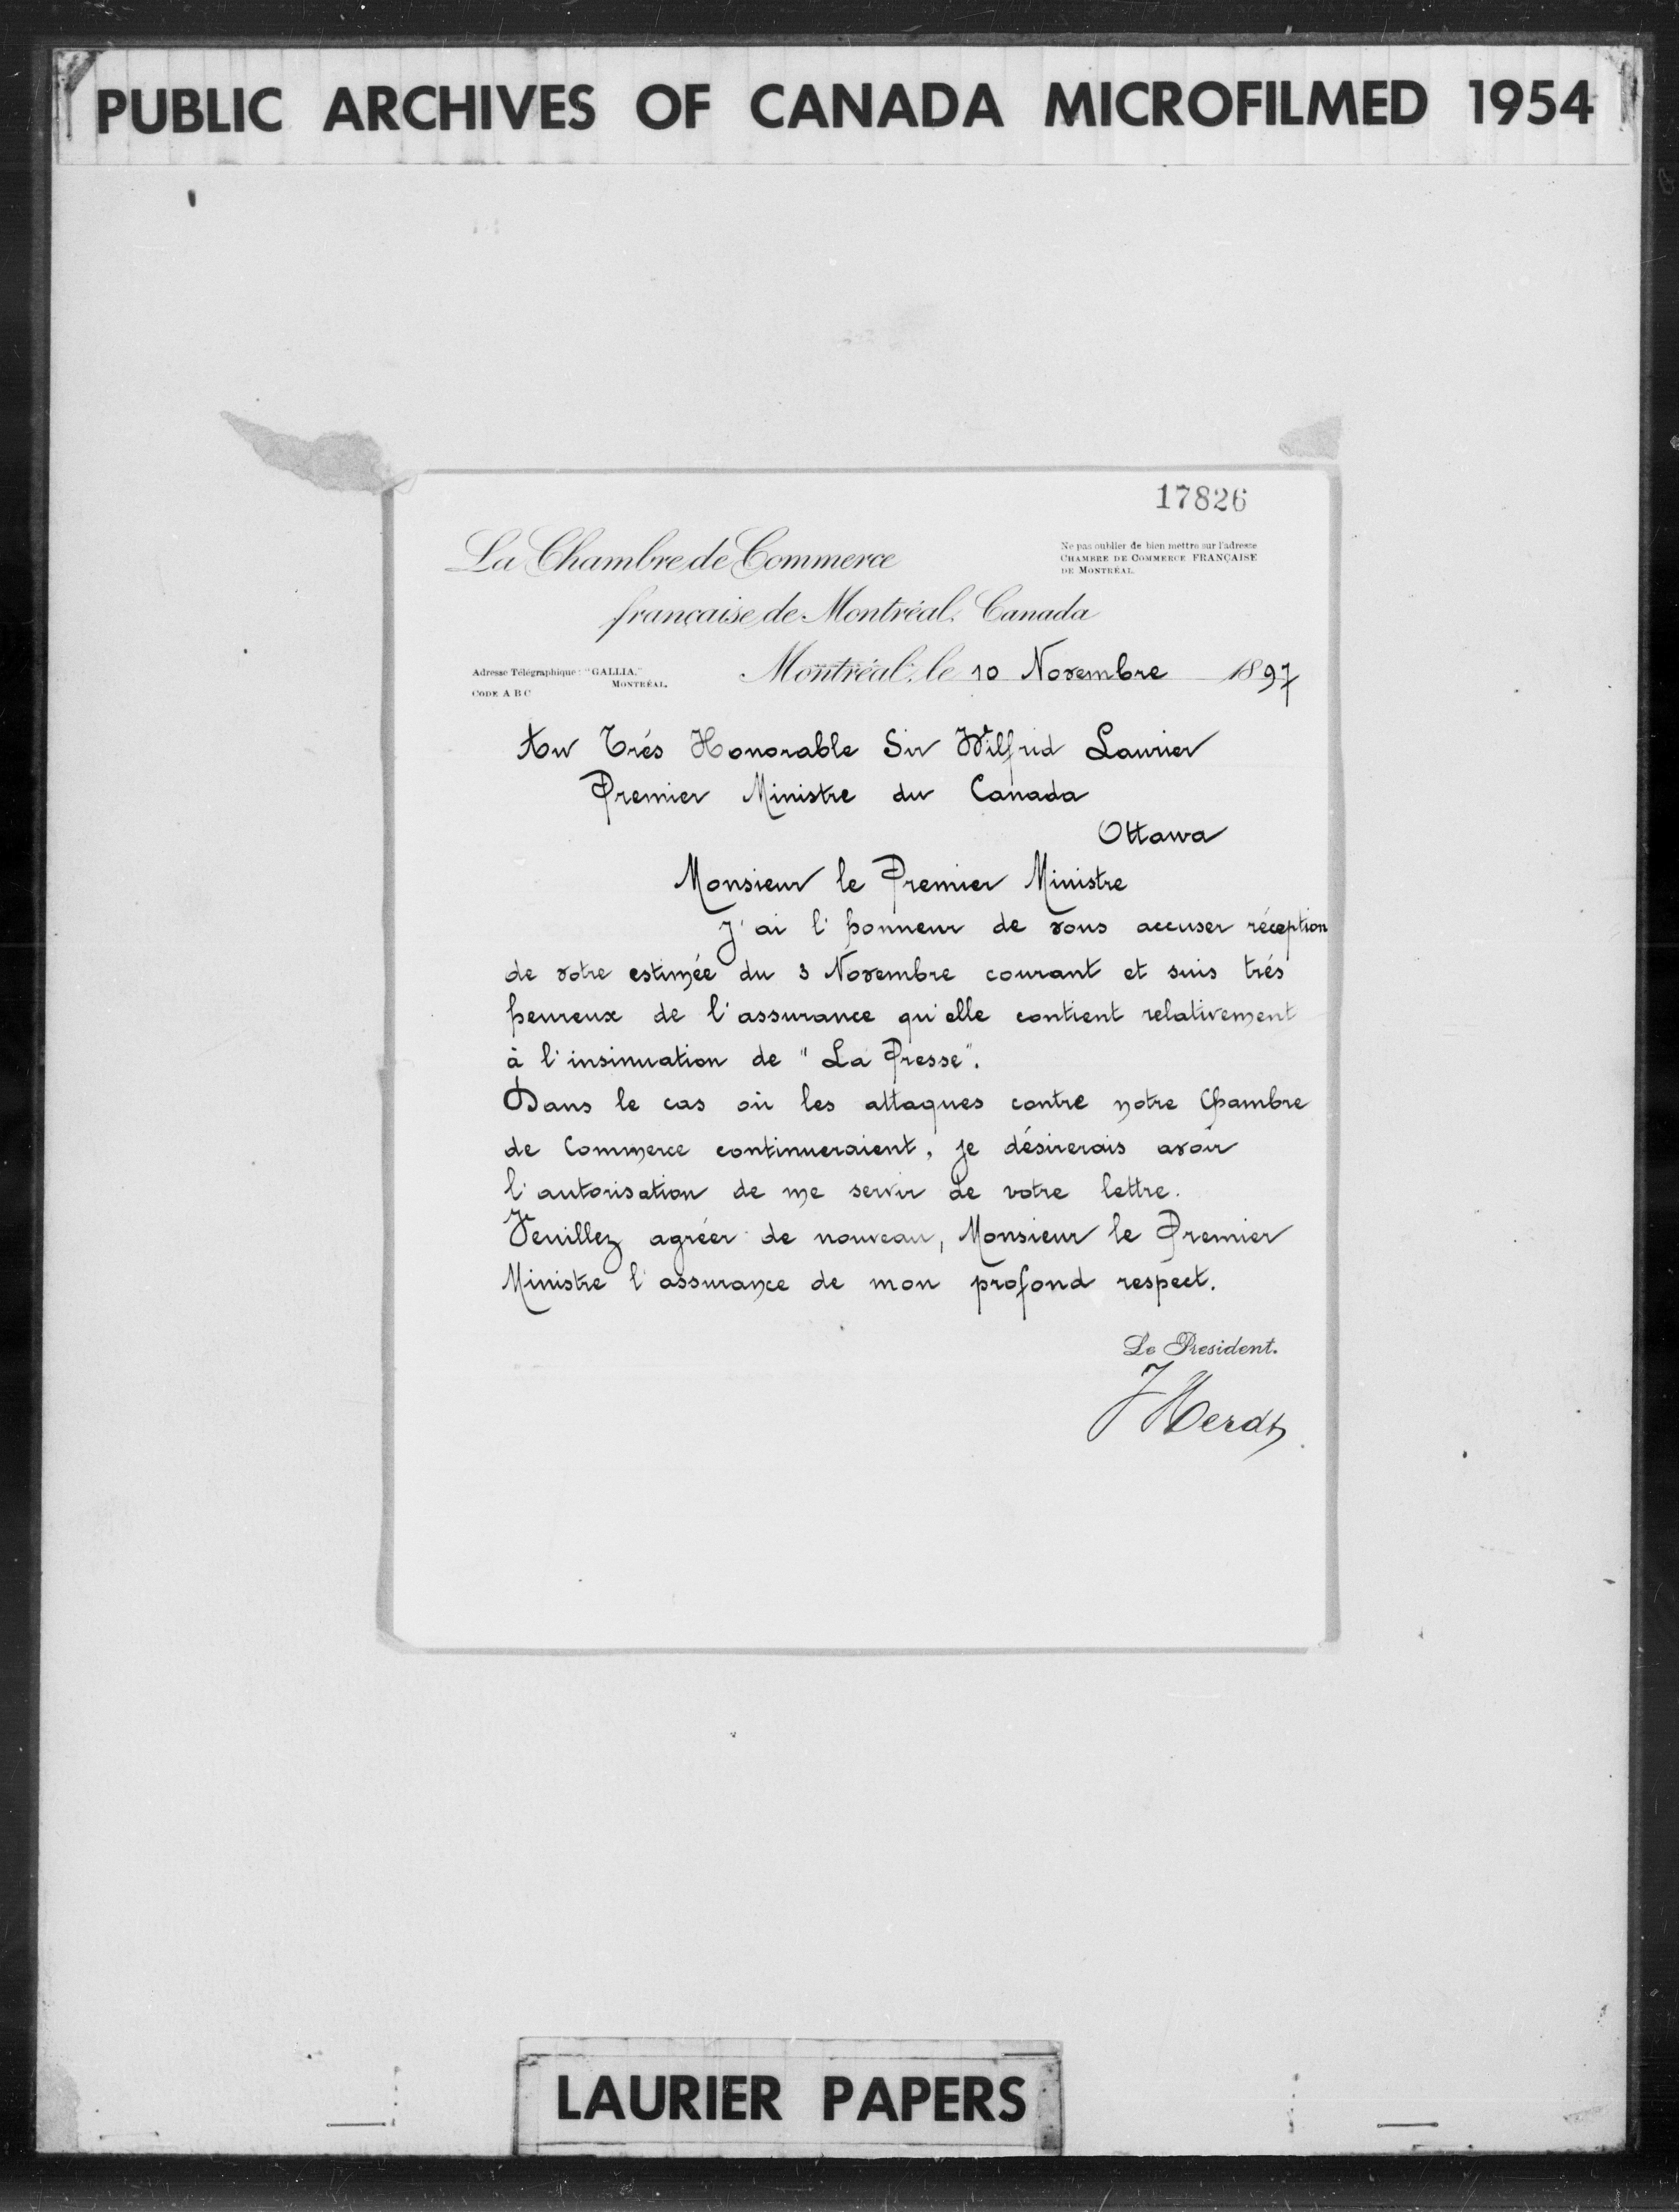 PUBLIC ARCHIVES OF CANADA MICROFILMED 1954
17826
La Chambre de Commerce
française de Montréal. Canada
Ne pas oublier de bien mettre sur l'adresse
CHAMBRE DE COMMERCE FRANÇAISE
DE MONTRÉAL
Adresse Télégraphique: "GALLIA,"
MONTRÉAL.
CODE A B C
Montréal, le 10 Novembre 1897
Au Trés Honorable Sir Wilfrid Laurier
Premier Ministre du Canada
Ottawa
Monsieur le Premier Ministre
J'ai l'honneur de vous accuser réception
de votre estimée du 3 Novembre courant et suis trés
heureux de l'assurance qu'elle contient relativement
à l'insinuation de "La Presse".
Dans le cas où les attaques contre notre Chambre
de Commerce continueraient, je désirerais avoir
l'autorisation de me servir de votre lettre.
Veuillez agréer de nouveau, Monsieur le Premier
Ministre l'assurance de mon profond respect.
Le President.
J Herdt
LAURIER PAPERS